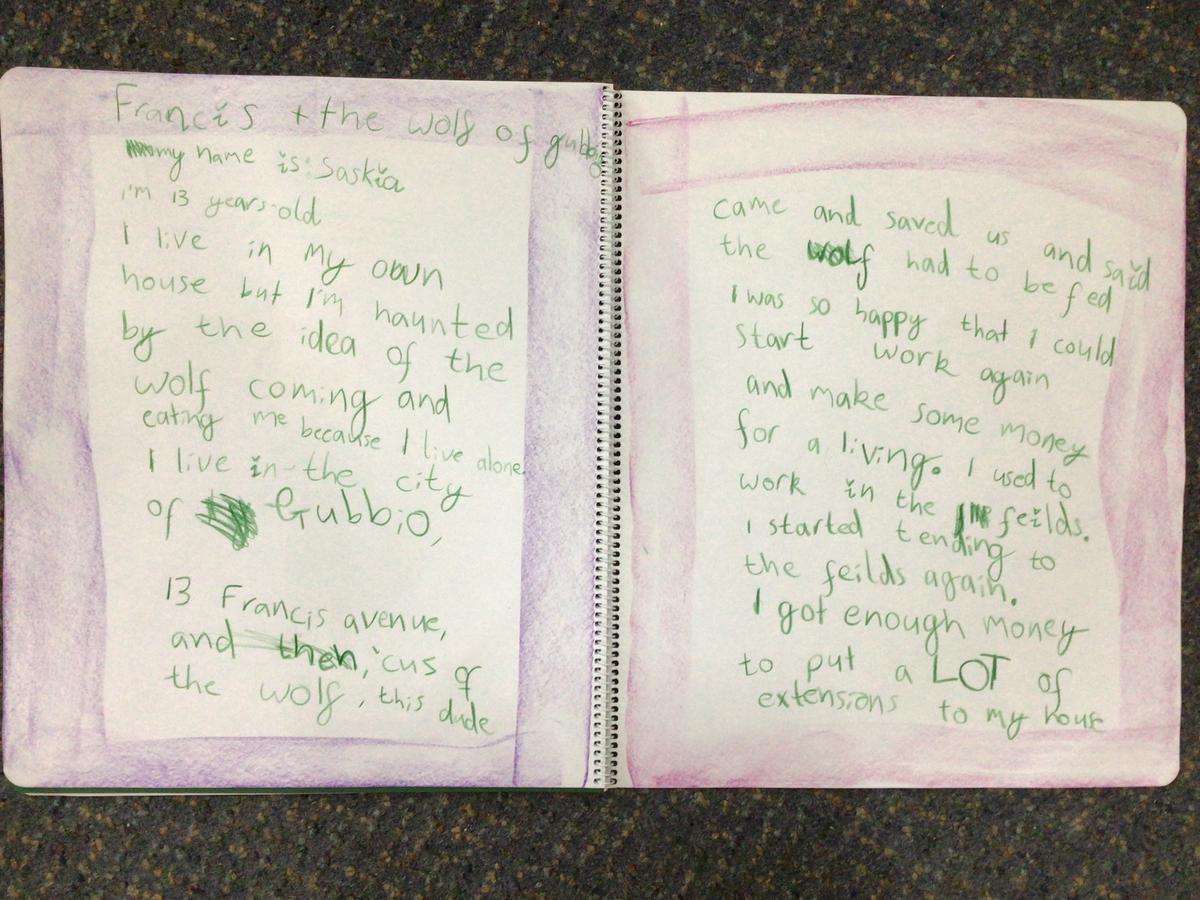 Francis + the wolf of gubbio
my name is: Saskia
i'm 13 years old
I live in my own
house but I'm haunted
by the idea of the
wolf coming and
eating me because I live alone.
I live in the city
of Gubbio,
13 Francis avenue,
and then, 'cus of
the wolf, this dude
came and saved us and said
the wolf had to be fed
I was so happy that I could
start work again
and make some money
for a living. I used to
work in the feilds.
I started tending to
the feilds again.
I got enough money
to put a LOT of
extensions to my house